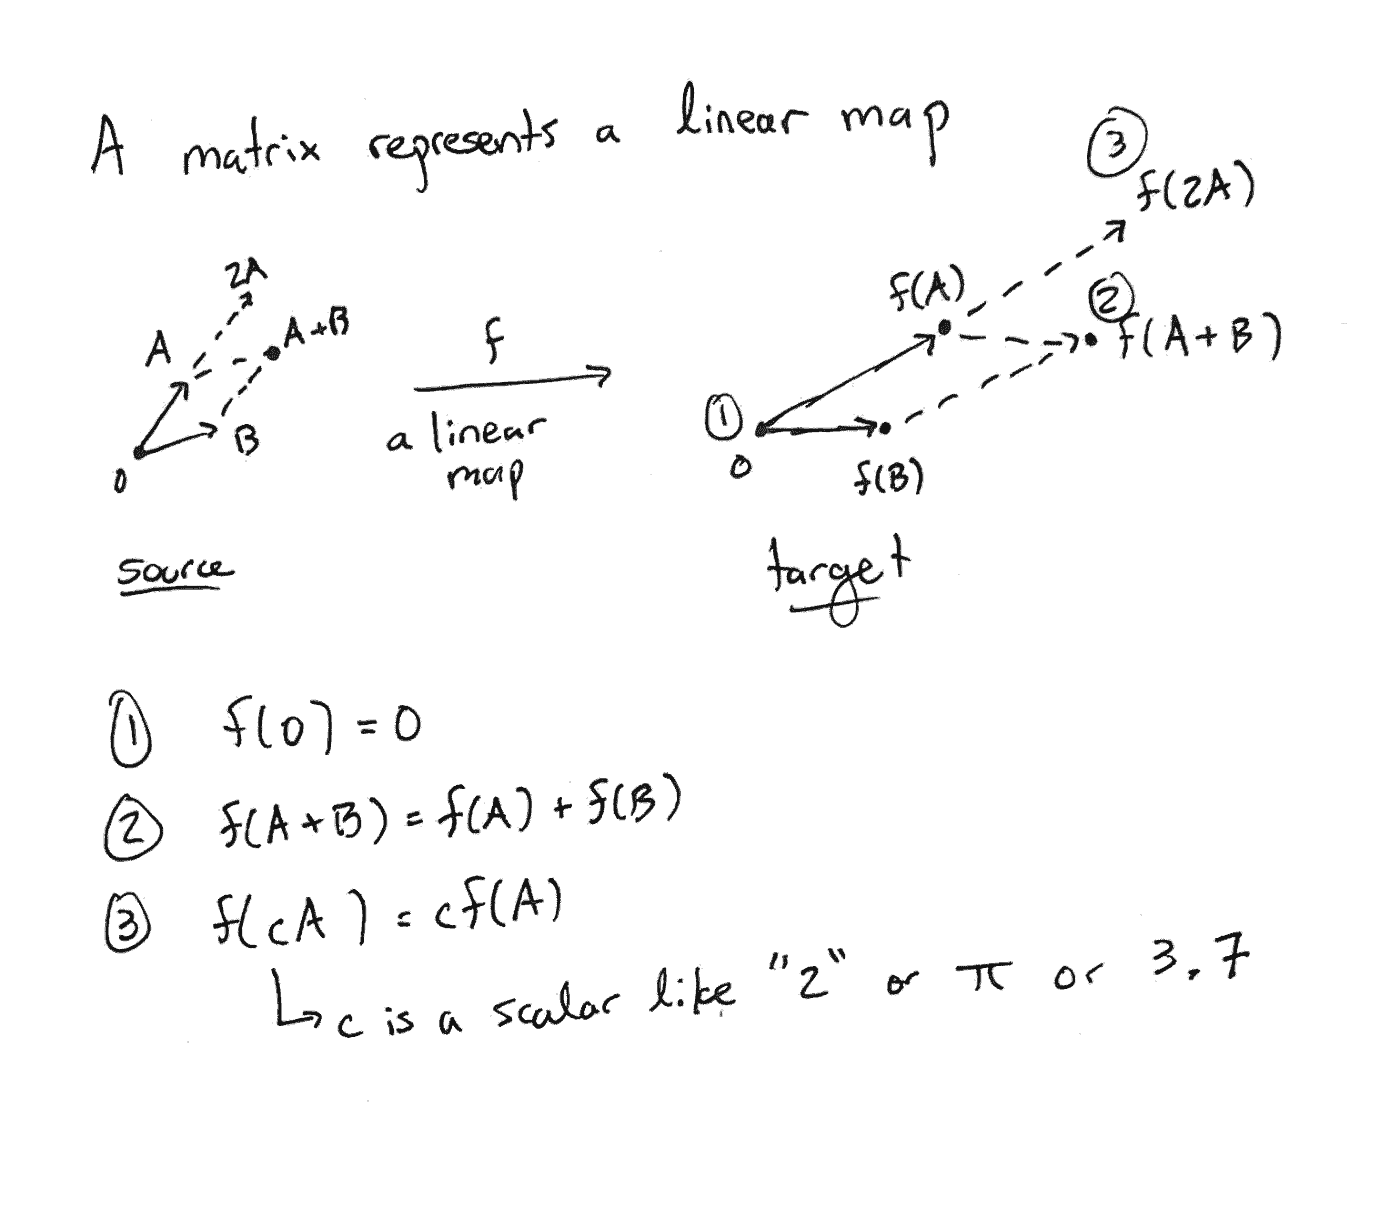 A matrix represents a linear map
③
f(2A)
2A
A
A+B
B
0
f
a linear
map
f(A)
②
f(A+B)
①
0
f(B)
source
target
① f(0) = 0
② f(A+B) = f(A) + f(B)
③ f(cA) = cf(A)
c is a scalar like "2" or π or 3.7